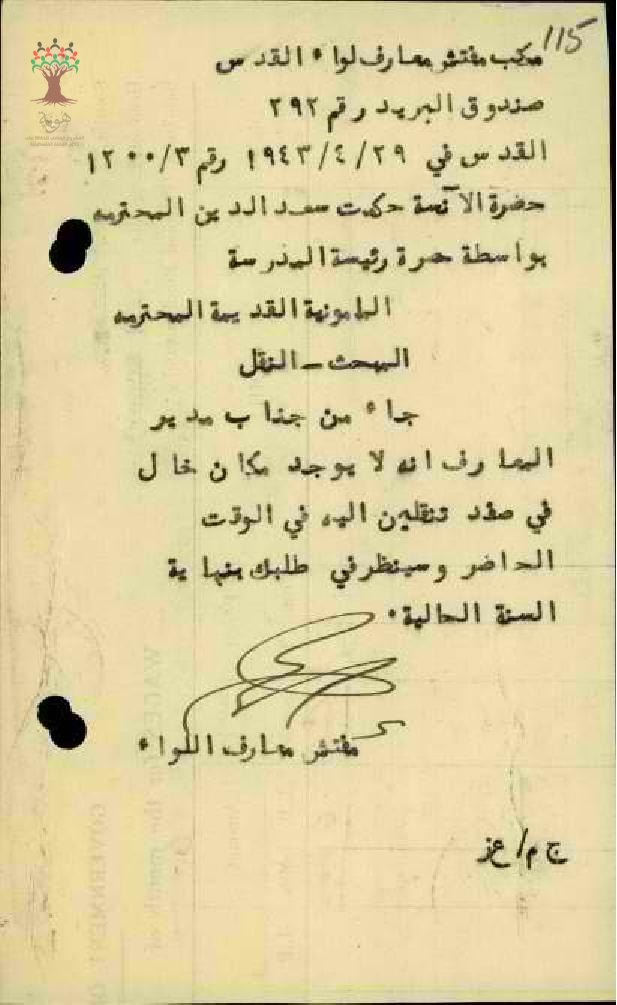 115
مكتب مفتش معارف لواء القدس
صندوق البريد رقم ٢٩٢
القدس في ٢٩/٤/١٩٤٣ رقم ١٢٠٠/٣
حضرة الآنسة حكمت سعد الدين المحترمه
بواسطة حضرة رئيسة المدرسة
المامونية القديمة المحترمه
البحث - النقل
جاء من جناب مدير
المعارف انه لا يوجد مكان خال
في صفد تنقلين اليه في الوقت
الحاضر وسينظر في طلبك بنهاية
السنة الحالية٠
مفتش معارف اللواء
ج م/ عز
هوية